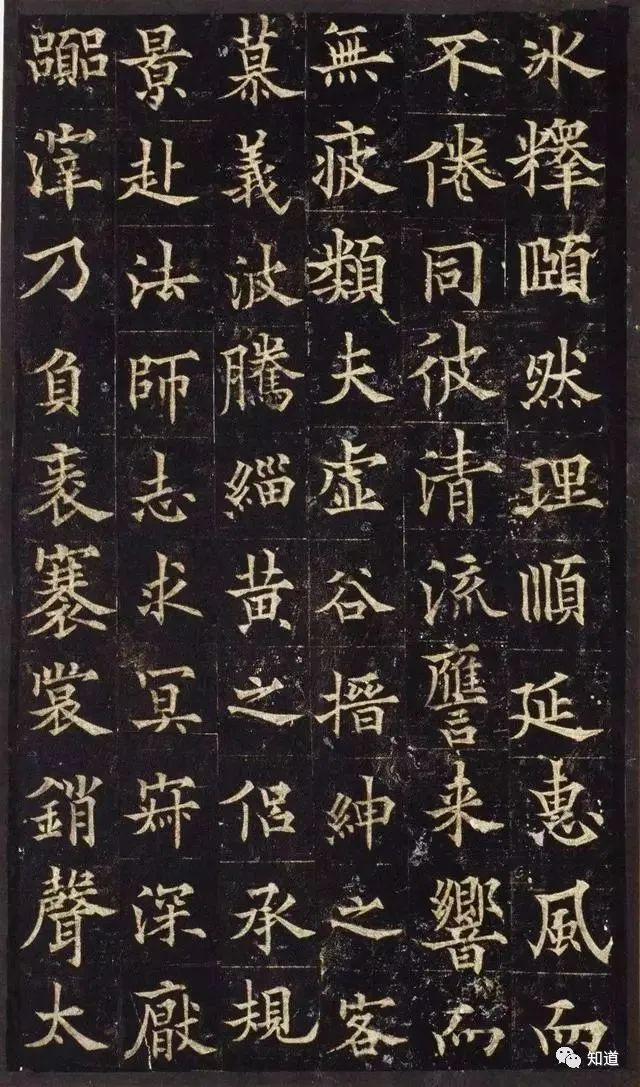 冰釋頤然理順延惠風而
不倦同彼清流譍来響而
無疲類夫虛谷搢紳之客
慕義波騰緇黃之侶承規
景赴法師志求冥寂深厭
嚻滓乃負袠褰裳銷聲太
知道